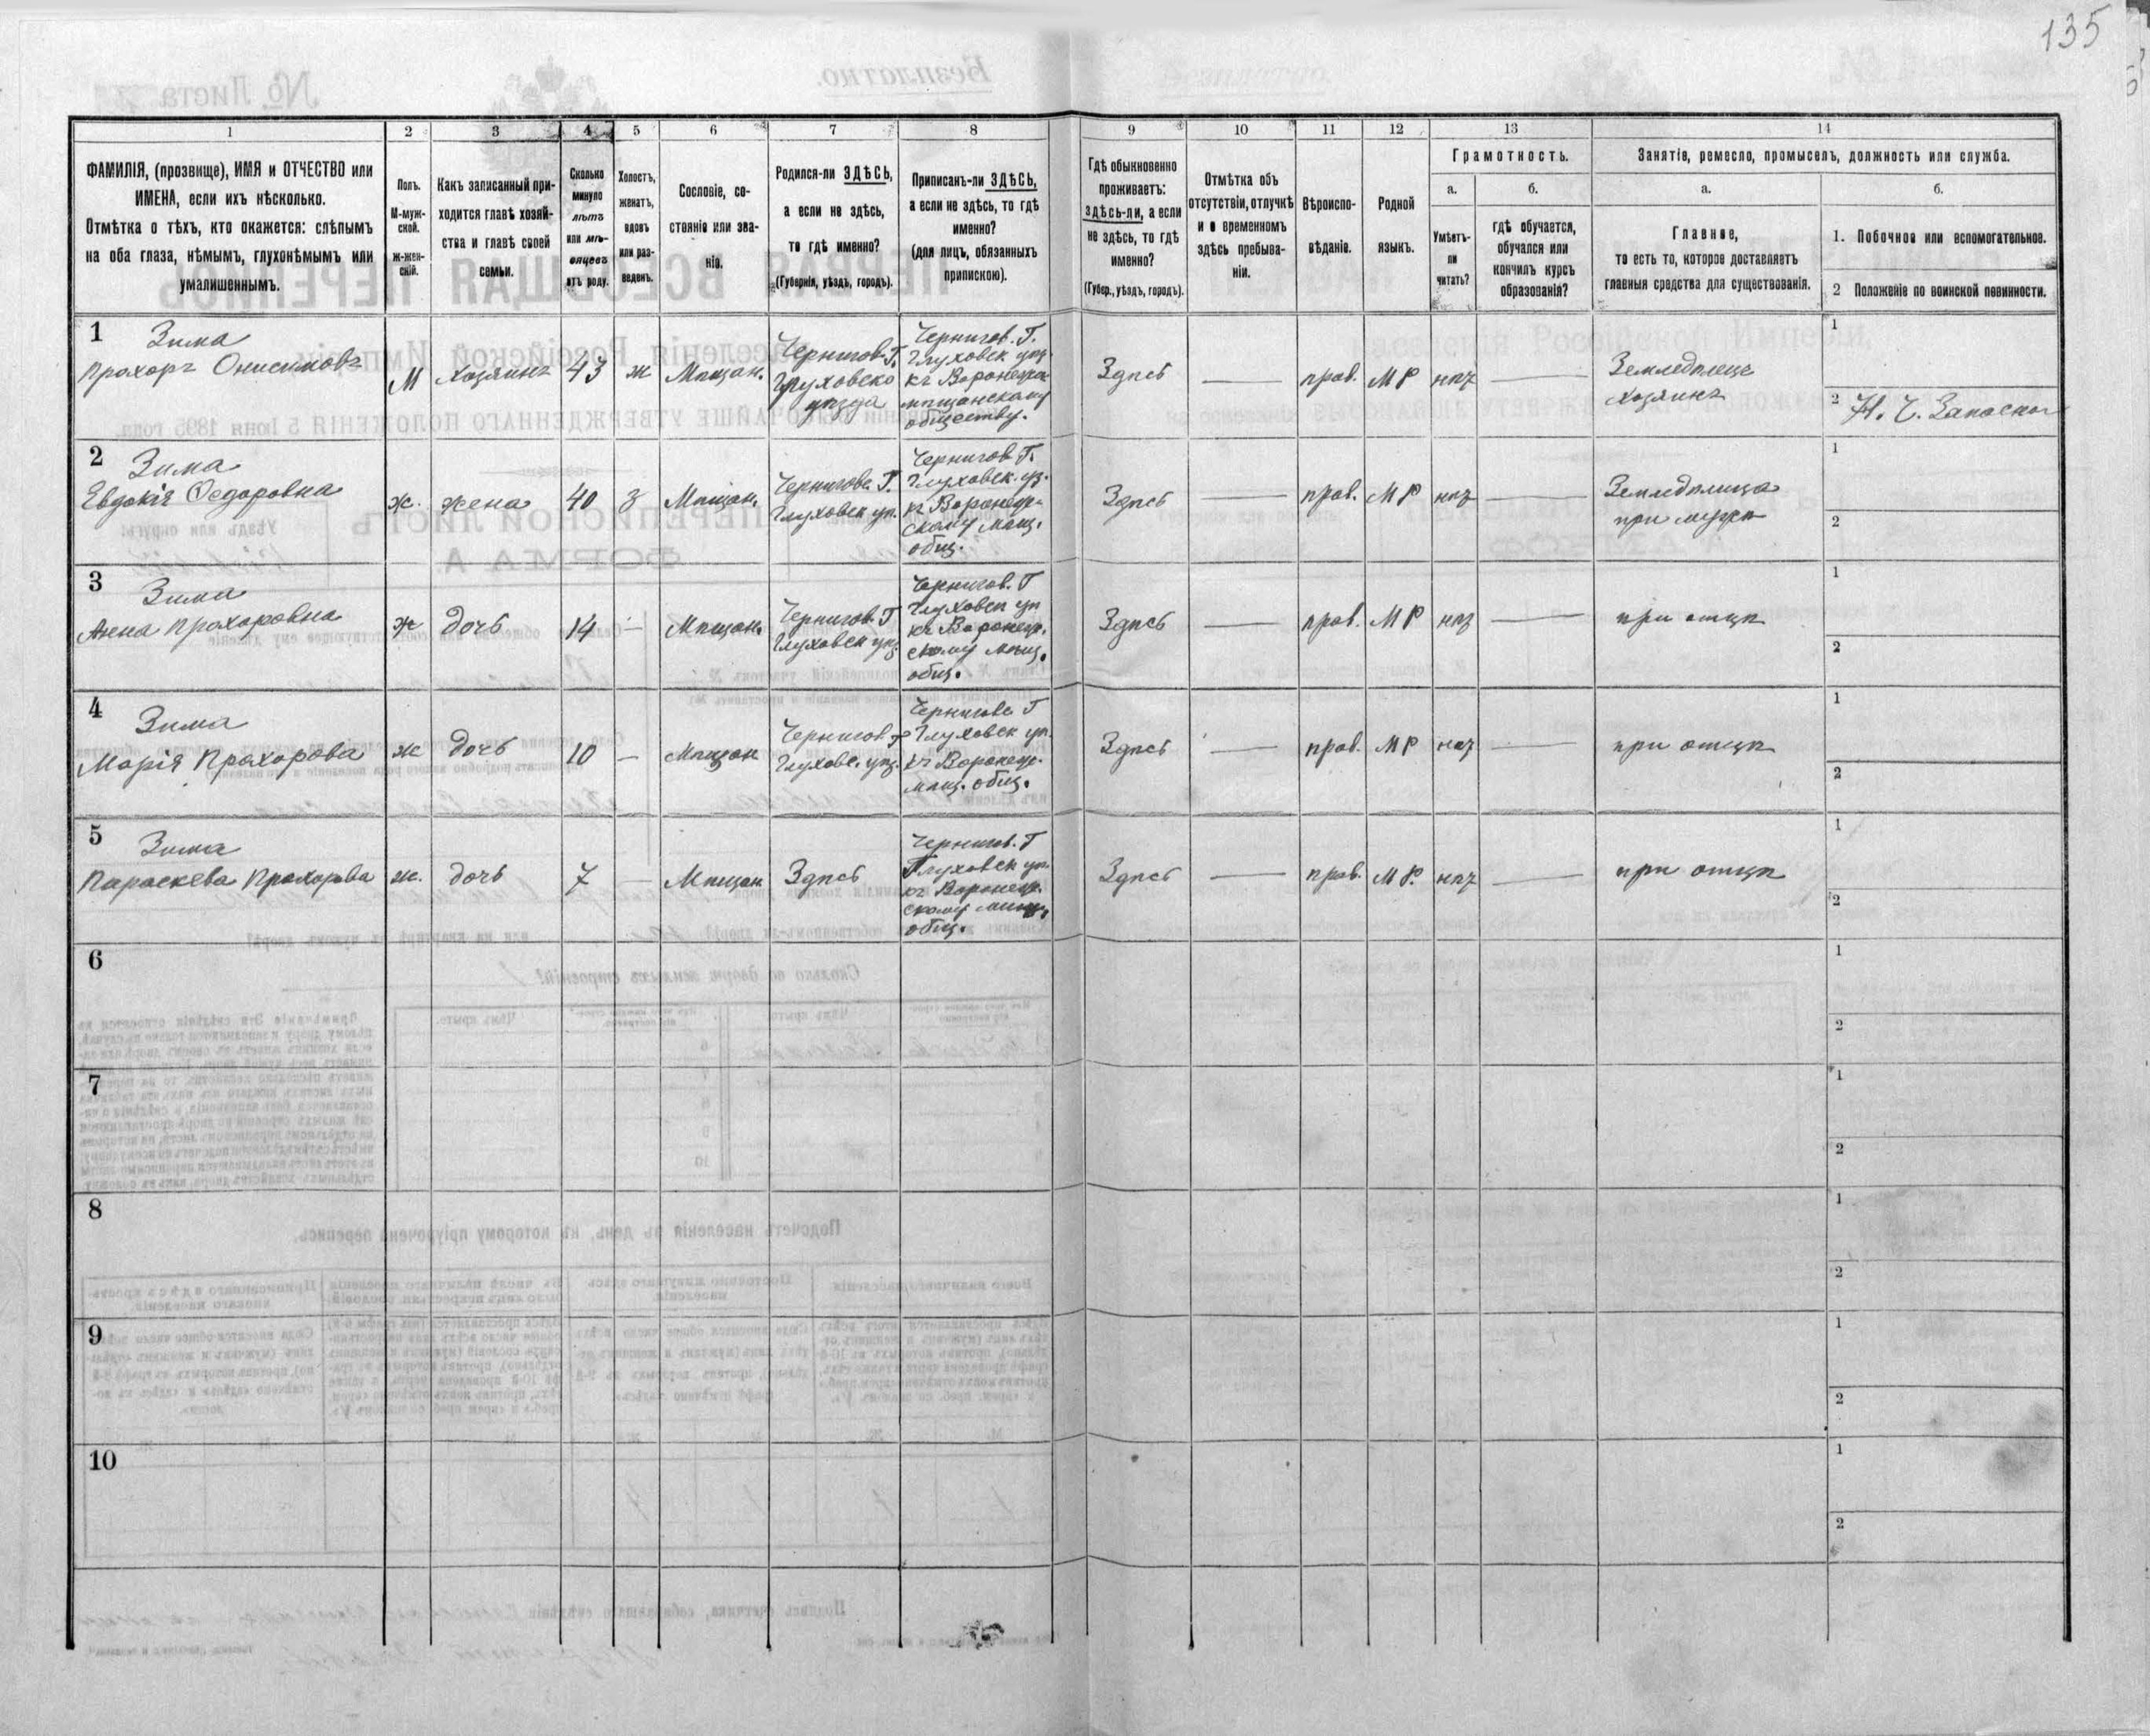 135
1
2
3
4
5
6
7
8
9
10
11
12
13
14
ФАМИЛІЯ, (прозвище), ИМЯ и ОТЧЕСТВО или
ИМЕНА, если ихъ нѣсколько.
Отмѣтка о тѣхъ, кто окажется: слѣпымъ
на оба глаза, нѣмымъ, глухонѣмымъ или
умалишеннымъ.
Полъ.
М-муж-
ской.
ж-жен-
скій.
Какъ записанный при-
ходится главѣ хозяй-
ства и главѣ своей
семьи.
Сколько
минуло
лѣтъ
или мѣ-
сяцевъ
отъ роду.
Холостъ,
женатъ,
вдовъ
или раз-
веденъ.
Сословіе, со-
стояніе или зва-
ніе.
Родился-ли ЗДѢСЬ,
а если не здѣсь,
то гдѣ именно?
(Губернія, уѣздъ, городъ).
Приписанъ-ли ЗДѢСЬ,
а если не здѣсь, то гдѣ
именно?
(для лицъ, обязанныхъ
припискою).
Гдѣ обыкновенно
проживаетъ:
здѣсь-ли, а если
не здѣсь, то гдѣ
именно?
(Губер., уѣздъ, городъ).
Отмѣтка объ
отсутствіи, отлучкѣ
и о временномъ
здѣсь пребыва-
ніи.
Вѣроиспо-
вѣданіе.
Родной
языкъ.
Грамотность.
а.
б.
Умѣетъ-
ли
читать?
гдѣ обучается,
обучался или
кончилъ курсъ
образованія?
Занятіе, ремесло, промыселъ, должность или служба.
а.
б.
Главное,
то есть то, которое доставляетъ
главныя средства для существованія.
1. Побочное или вспомогательное.
2 Положеніе по воинской повинности.
1
Зима
Прохоръ Онисимовъ
М
хозяинъ
43
ж
Мѣщан.
Чернигов. Г.
Глуховско
уѣзда
Чернигов. Г.
Глуховск уѣз.
къ Воронежск
мѣщанскому
обществу.
Здѣсь
—
прав.
МР
нѣт
—
Земледѣлецъ
хозяинъ
1
2
Н. Ч. Запаснаг
2
Зима
Евдокія Федоровна
ж.
жена
40
з
Мѣщан.
Чернигов. Г.
Глуховск уѣ.
Чернигов Г.
Глуховск. уѣ.
къ Воронеж-
скому мѣщ.
общ.
Здѣсь
—
прав.
МР
нѣт
—
Земледѣлица
при мужѣ
1
2
3
Зима
Анна Прохоровна
ж
дочь
14
—
Мѣщан.
Чернигов. Г
Глуховск уѣз
Чернигов. Г
Глуховск уѣ
къ Воронеж.
скому мѣщ.
общ.
Здѣсь
—
прав.
МР
нѣт
—
при отцѣ
1
2
4
Зима
Марія Прохорова
ж
дочь
10
—
Мѣщан
Чернигов Г
Глуховс. уѣз.
Чернигов Г
Глуховск уѣ.
къ Воронеж.
мѣщ. общ.
Здѣсь
—
прав.
МР
нѣт
—
при отцѣ
1
2
5
Зима
Параскева Прохорова
ж.
дочь
7
—
Мѣщан
Здѣсь
Чернигов. Г
Глуховск уѣ.
къ Воронеж.
скому мѣщ.
общ.
Здѣсь
—
прав.
МР.
нѣт
—
при отцѣ
1
2
6
1
2
7
1
2
8
1
2
9
1
2
10
1
2